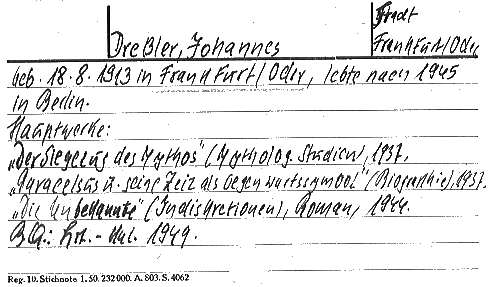 Dreßler, Johannes
Stadt
Frankfurt/Oder
geb. 18.8.1913 in Frankfurt/Oder, lebte nach 1945
in Berlin.
Hauptwerke:
„Der Siegeszug des Mythos" (Mytholog. Studien), 1937.
„Paracelsus u. seine Zeit als Gegenwartssymbol" (Biographie), 1937.
„Die Unbekannte" (Indiskretionen), Roman, 1944.
BQ.: 1949.
Reg. 10. Stichnote 1. 50. 232 000. A. 803. S. 4062